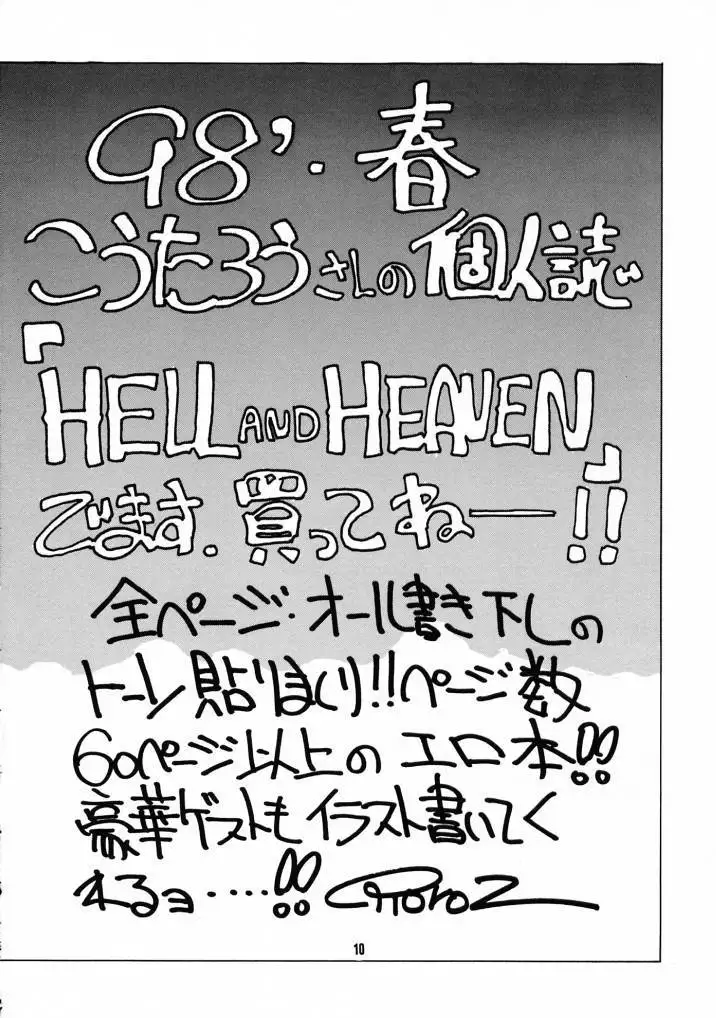 98'・春
こうたろうさんの個人誌
『HELL AND HEAVEN』
でます.買ってねー!!
全ページ・オール書き下しの
トーン貼りまくり!!ページ数
60ページ以上のエロ本!!
豪華ゲストもイラスト書いてく
れるョ・・・・!!
10